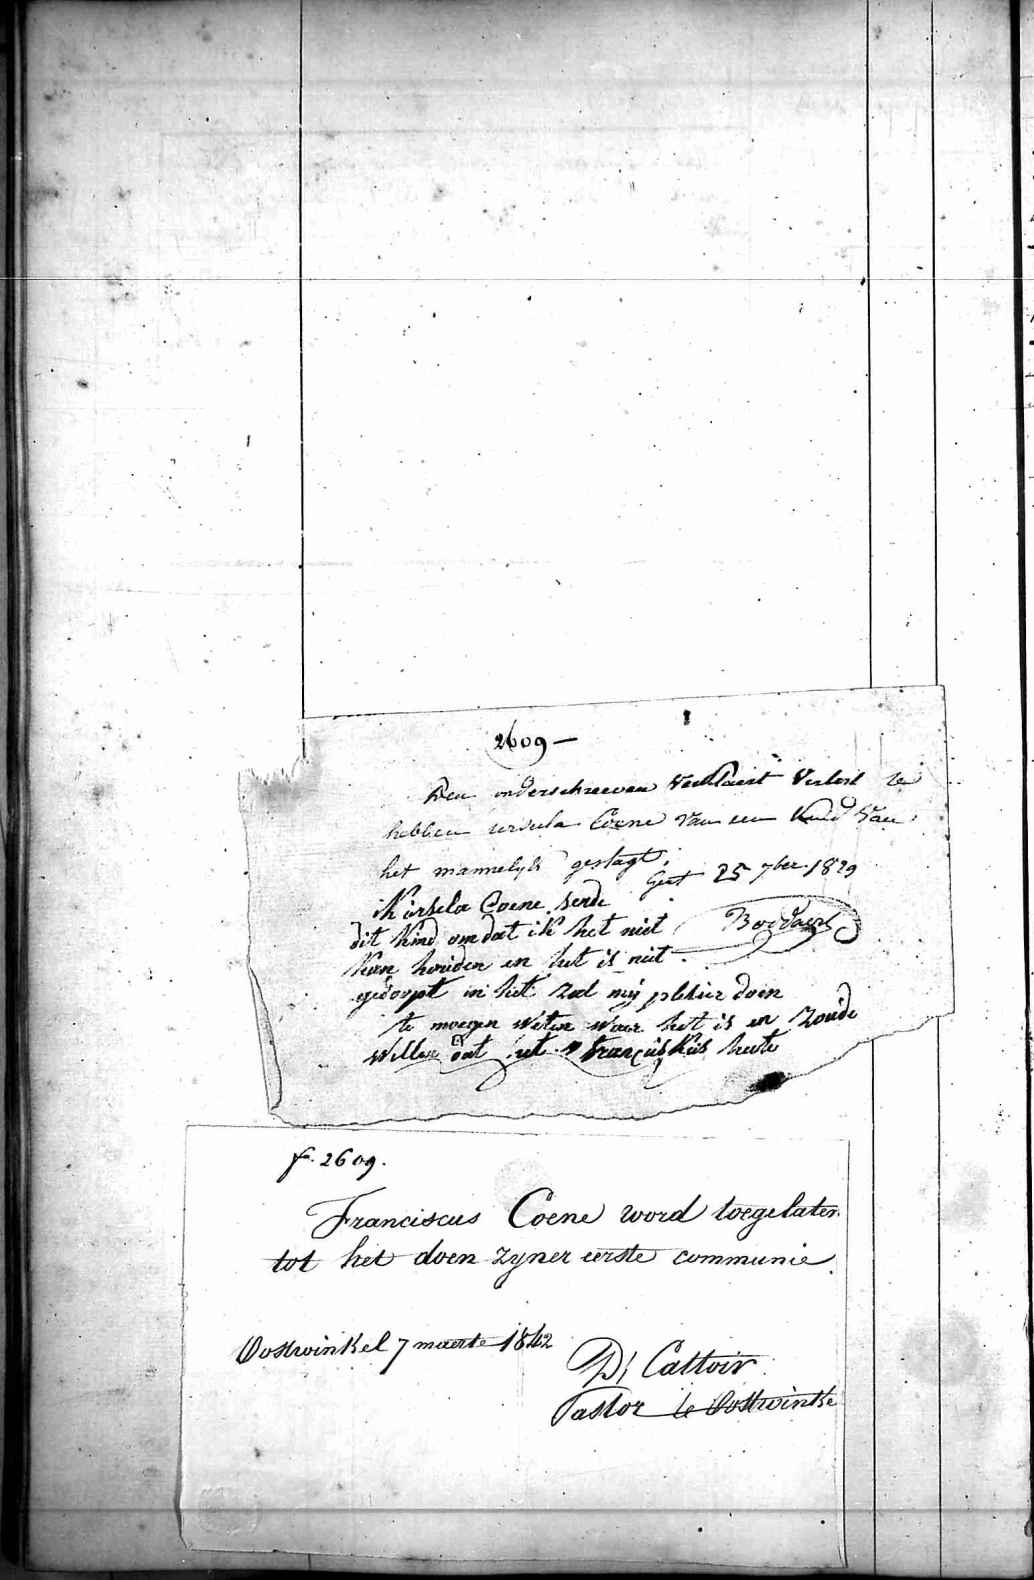 2609 —
Den onderschreeven Verklaert Verlost te
hebben ursula Coene Van een Kind Van
het mannelyk geslagt,
Gent 25 7ber 1829
ik ürsela Coene sende
Boddaert
dit kind omdat ik het niet
kan houden en het is niet
gedoopt in het zal mij plesier doen
te moegen weten waer het is en zoude
willen dat het franciskus heete
f. 2609.
Franciscus Coene word toegelaten
tot het doen zyner eerste communie.
Oostwinkel 7 maerte 1842
D, Cattoir
Pastor te Oostwinke